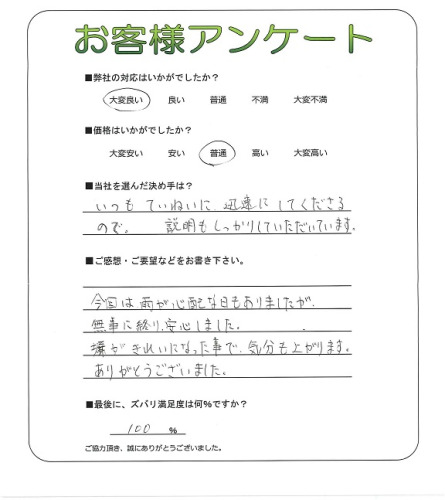 お客様アンケート
■弊社の対応はいかがでしたか？
大変良い 良い 普通 不満 大変不満
■価格はいかがでしたか？
大変安い 安い 普通 高い 大変高い
■当社を選んだ決め手は？
いつも ていねいに 迅速に してくださる
ので。 説明もしっかりしていただいています.
■ご感想・ご要望などをお書き下さい。
今回は雨が心配な日もありましたが、
無事に終り、安心しました。
塀が きれいになった事で、気分も上がります。
ありがとうございました。
■最後に、ズバリ満足度は何%ですか？
100 %
ご協力頂き、誠にありがとうございました。